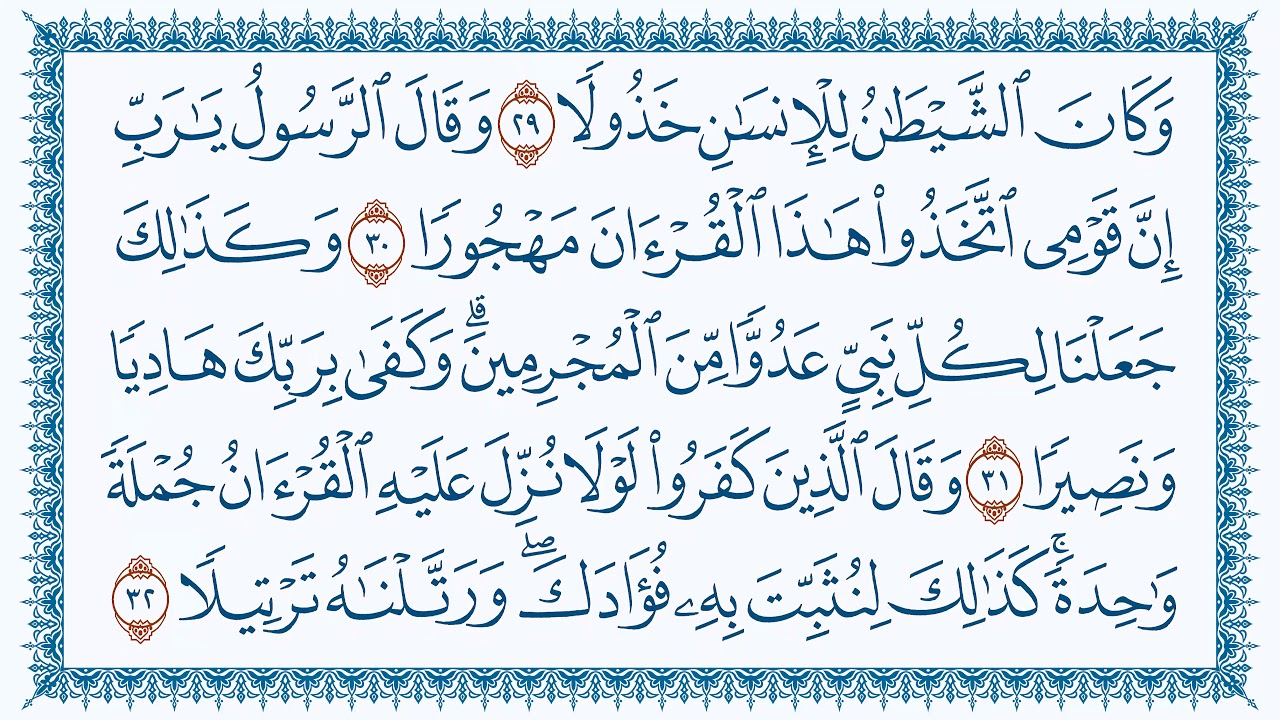 وَكَانَ ٱلشَّيْطَـٰنُ لِلْإِنسَـٰنِ خَذُولًا ٢٩ وَقَالَ ٱلرَّسُولُ يَـٰرَبِّ
إِنَّ قَوْمِى ٱتَّخَذُوا۟ هَـٰذَا ٱلْقُرْءَانَ مَهْجُورًا ٣٠ وَكَذَٰلِكَ
جَعَلْنَا لِكُلِّ نَبِىٍّ عَدُوًّا مِّنَ ٱلْمُجْرِمِينَ ۗ وَكَفَىٰ بِرَبِّكَ هَادِيًا
وَنَصِيرًا ٣١ وَقَالَ ٱلَّذِينَ كَفَرُوا۟ لَوْلَا نُزِّلَ عَلَيْهِ ٱلْقُرْءَانُ جُمْلَةً
وَٰحِدَةً ۚ كَذَٰلِكَ لِنُثَبِّتَ بِهِۦ فُؤَادَكَ ۖ وَرَتَّلْنَـٰهُ تَرْتِيلًا ٣٢